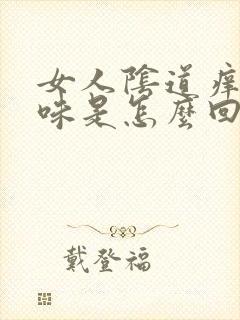 女人陰道痒
味是怎麼回
戴登福